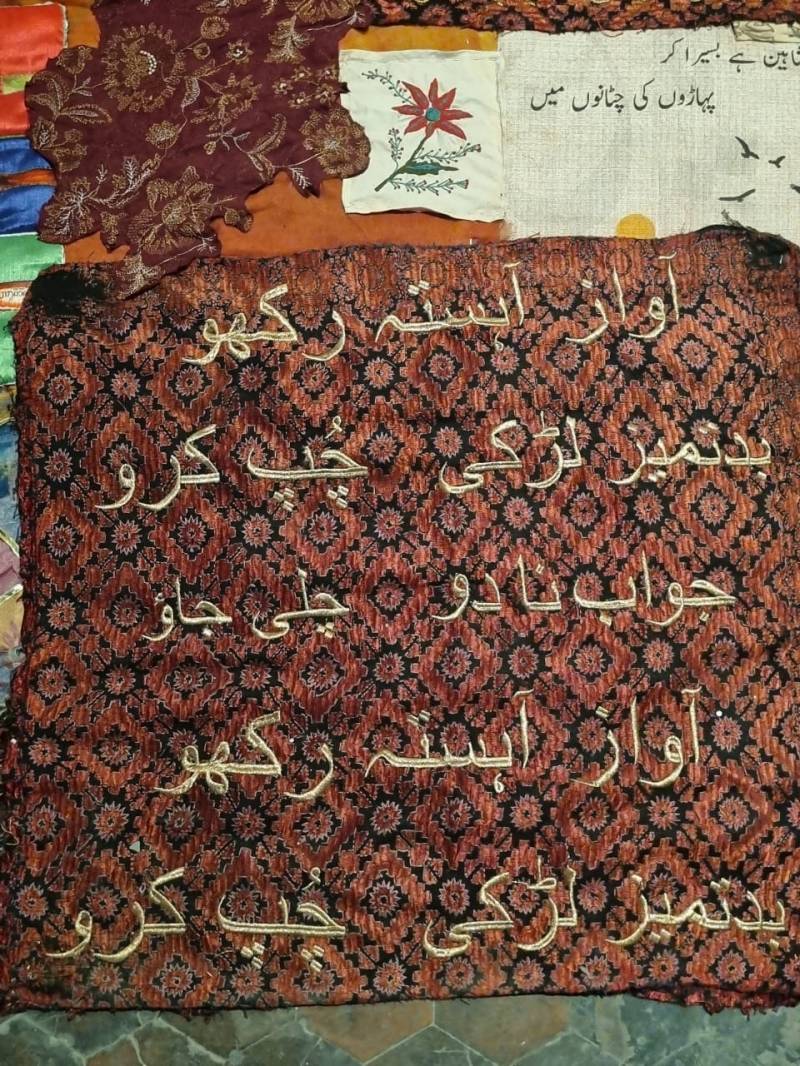 شاہین ہے بسیرا کر
پہاڑوں کی چٹانوں میں
آواز آہستہ رکھو
بدتمیز لڑکی چُپ کرو
جواب نا دو چلی جاؤ
آواز آہستہ رکھو
بدتمیز لڑکی چُپ کرو